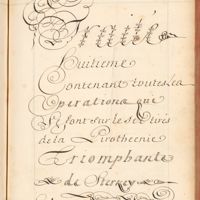 Traité
Huitieme
Contenant toutes les
Operations que
Se font sur le
de la Pirothecnie
Triomphante
de